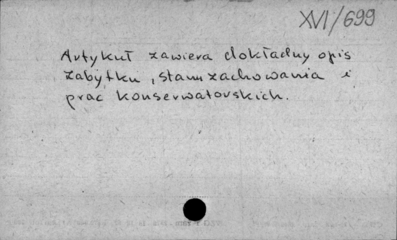 XVI/699
Artykuł zawiera dokładny opis
zabytku, stanu zachowania i
prac konserwatorskich.